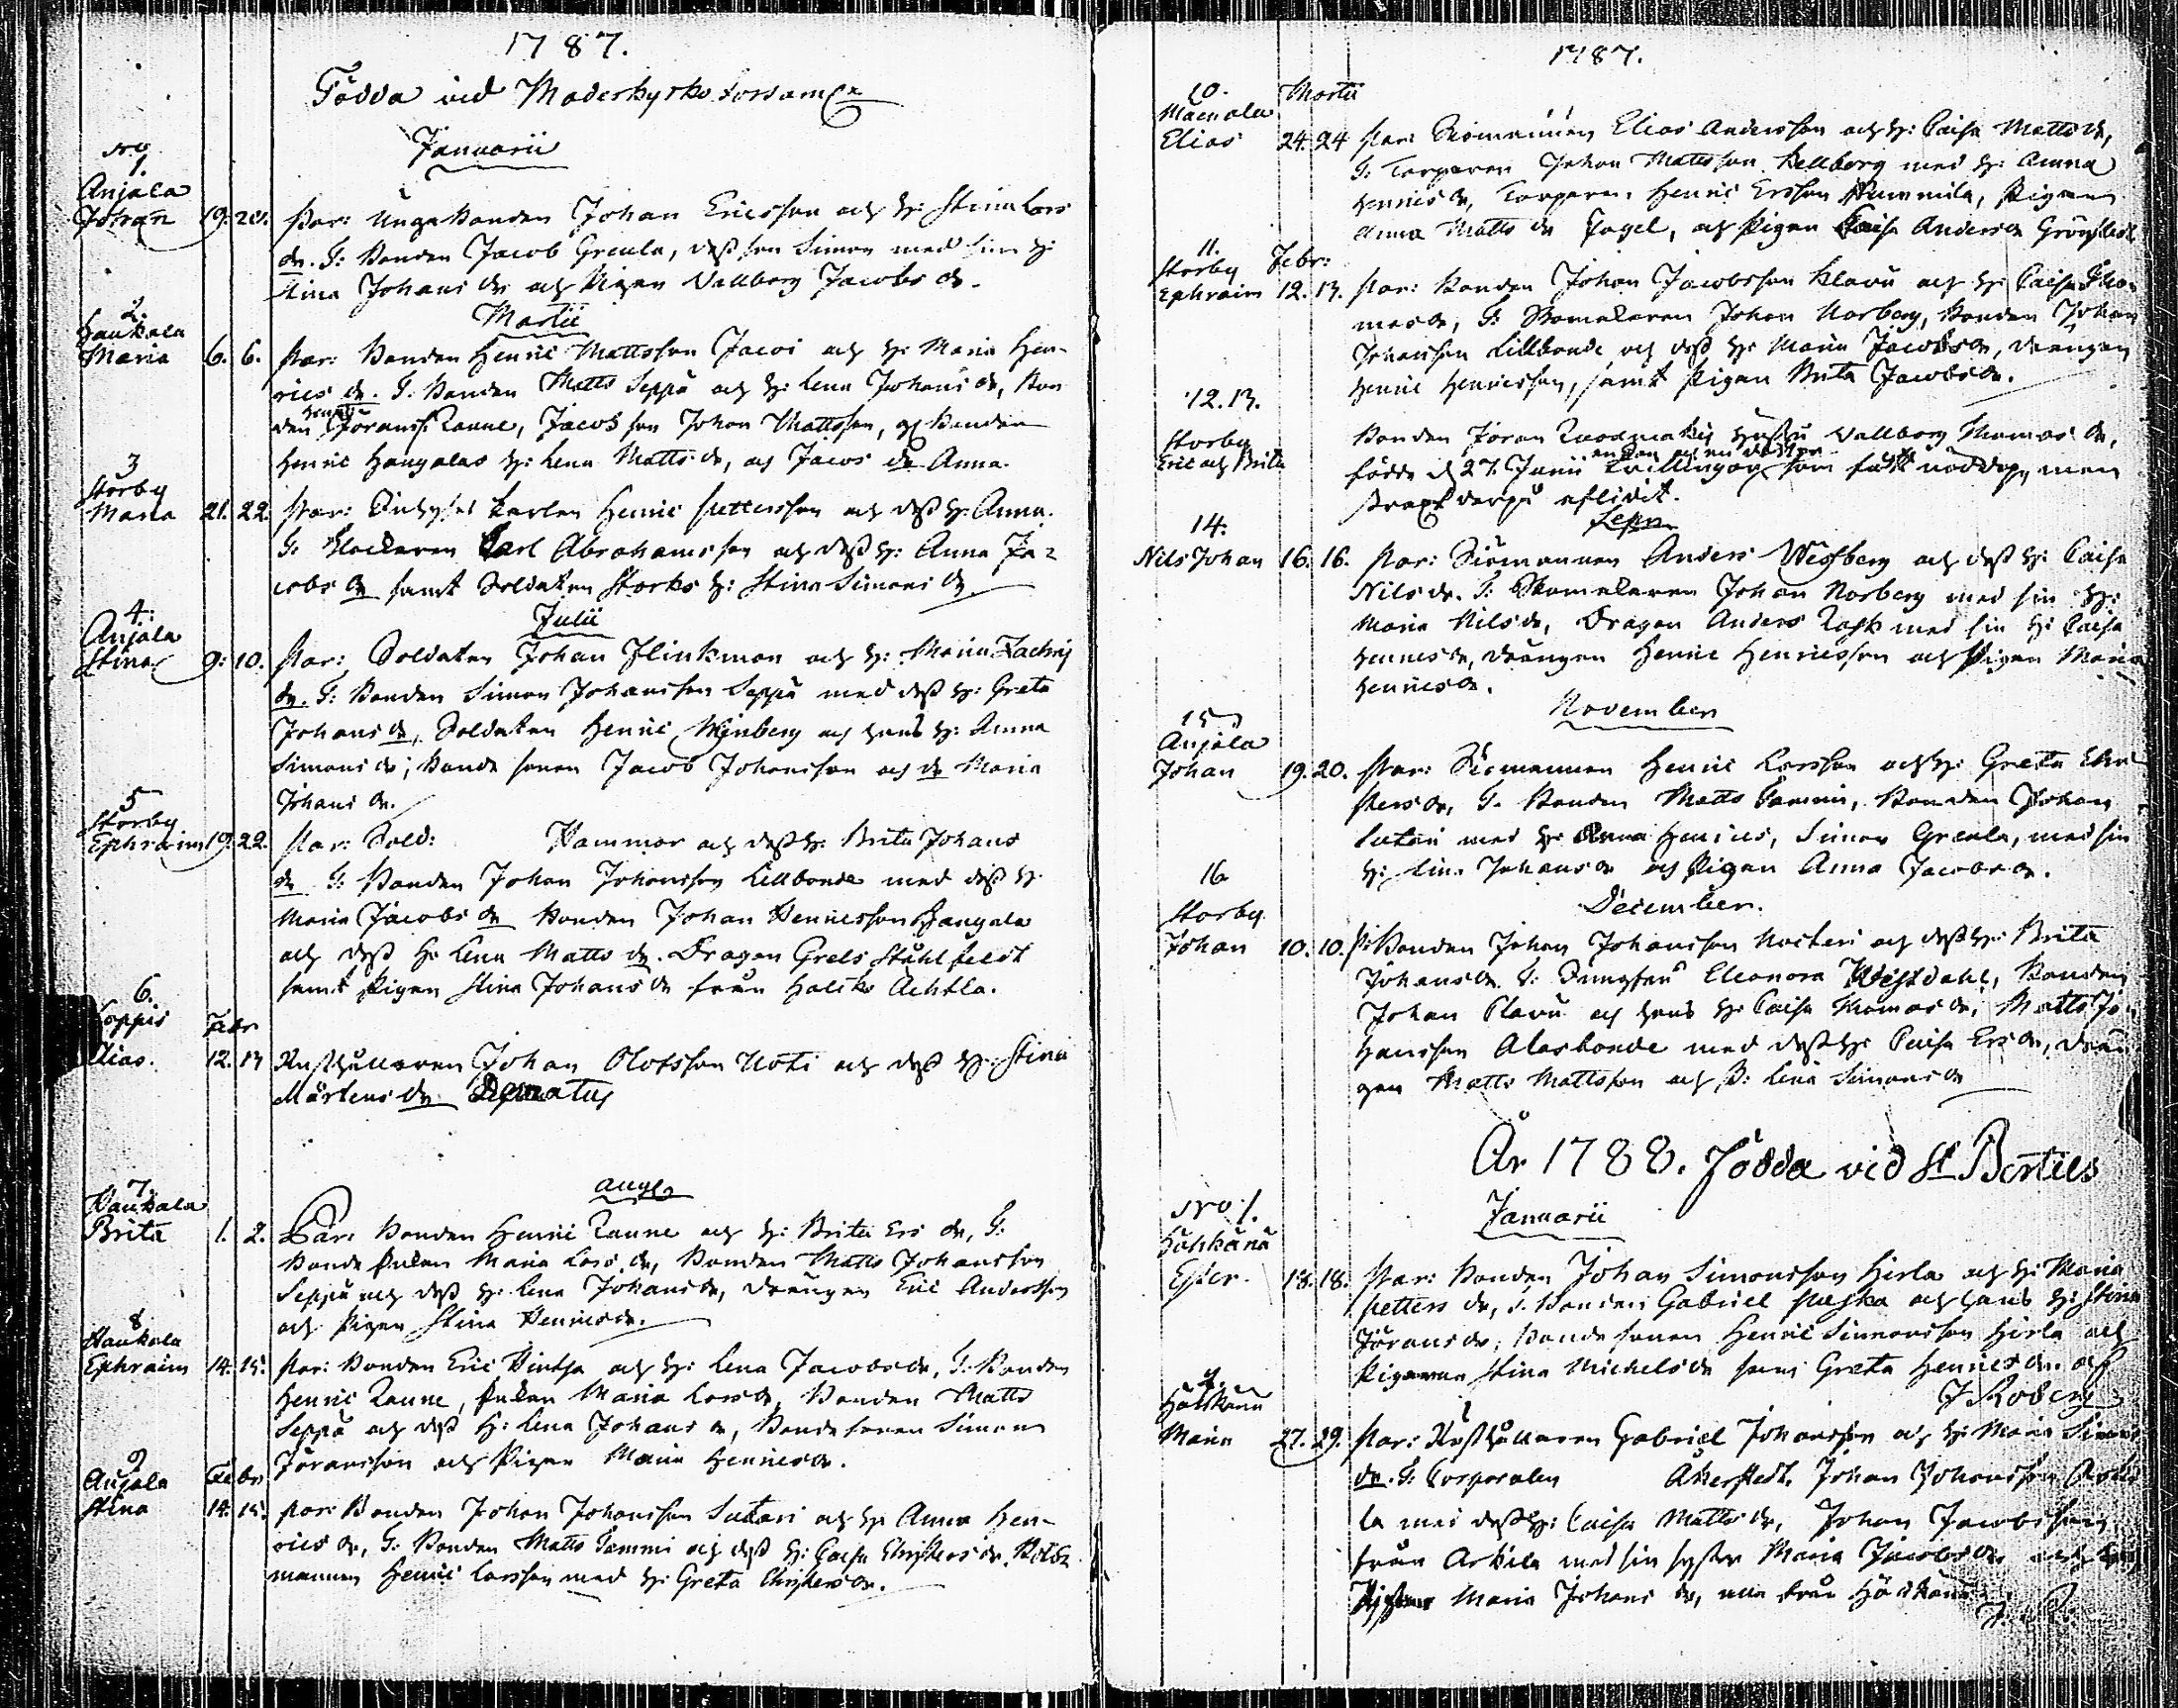 1787.
Födda vid Moderkyrko församl
Januarii
No
1.
Anjala
Johan 19. 20. Par: Unga Bonden Johan Ericsson och h: Stina Lars
dr. T: Bonden Jacob Greula, dess son Simon med sin h:
Stina Johans dr och Pigan Vallborg Jacobs dr.
Martii
2.
Haukala
Maria 6. 6. Par: Bonden Henric Mattsson Jacoi och h: Maria Hen-
rics dr. T. Bonden Matts Seppä och h: Lena Johans dr, Bon
den Henric Göranss: Raune, Jacobsson Johan Mattsson, och Bonden
Henric Haugalas h: Lena Matts dr, och Jacobs dr Anna.
3
Storby
Maria 21. 22. Par: Karlen Henric Pettersson och dess h: Anna.
T: Klockaren Carl Abrahamsson och dess h: Anna Ja-
cobs dr samt Soldaten Storks h: Stina Simons dr
Julii
4.
Anjala
Stina 9. 10. Par: Soldaten Johan Flinkman och h: Maria Zachris
dr. T: Bonden Simon Johansson Seppä med dess h: Greta
Johans dr, Soldaten Henric Winberg och hans h: Anna
Simons dr; Bonde sonen Jacob Johansson och dr Maria
Johans dr.
5
Storby
Ephraim 19. 22. Par: Sold: Hammar och dess h: Brita Johans
dr T: Bonden Johan Johansson Lillbonde med dess h:
Maria Jacobs dr Bonden Johan Henricsson Haugala
och dess h: Lena Matts dr. Dragon Grels Stählfeldt
samt Pigan Stina Johans dr från Halcko Achtla.
6.
Koppis Febr
Elias. 12. 13 Rusthållaren Johan Olofsson Uoti och dess h: Stina
Mårtens dr
Augs
7.
Haukala
Brita 1. 2. Par: Bonden Henric Raune och h: Brita Ers dr, T:
Bonde Enkan Maria Lars dr, Bonden Matts Johansson
Seppä och dess h: Lena Johans dr, Drängen Eric Andersson
och Pigan Stina Henrics dr.
8
Haukala
Ephraim 14. 15. Par: Bonden Eric Hintsa och h: Lena Jacobs dr, T: Bonden
Henric Raune, Enkan Maria Lars dr, Bonden Matts
Seppä och dess h: Lena Johans dr, Bonde sonen Simon
Göransson och Pigan Maria Henrics dr.
9
Anjala Febr
Stina 14. 15. Par: Bonden Johan Johansson Sutari och h: Anna Hen-
rics dr, T: Bonden Matts Tammi och dess h: Caisa Christers dr,
mannen Henric Larsson med h: Greta Christers dr.
1787.
10. Martii
Elias 24. 24 Par: Siömannen Elias Andersson och h: Caisa Matts dr,
T: Torparen Johan Mattsson Kellberg med h: Anna
Henrics dr, Torparen Henric Ersson Nummila, Pigan
Anna Matts dr Fagel, och Pigan Caisa Anders dr
11.
Storby Febr:
Ephraim 12. 13. Par: Bonden Johan Jacobsson Klavu och h: Caisa Tho-
mas dr, T: Skomakaren Johan Norberg, Bonden Johan
Johansson Lillbonde och dess h: Maria Jacobs dr, Drängen
Henric Henricsson, samt Pigan Brita Jacobs dr.
12. 13.
Storby
Eric och Brita Bonden Jöran hustru Vallborg Thomas dr,
födde d 27. Junii Tvillingar en son och en dotter som fått nöddop, men
straxt derpå aflidit.
Sept
14.
Nils Johan 16. 16. Par: Siömannen Anders Westberg och dess h: Caisa
Nils dr. T: Skomakaren Johan Norberg med sin h:
Maria Nils dr, Dragon Anders Rask med sin h: Caisa
Henrics dr, Drängen Henric Henricsson och Pigan Maria
Henrics dr.
November
15
Anjala
Johan 19. 20. Par: Siömannen Henric Larsson och h: Greta Chri
sters dr, T. Bonden Matts Tammi, Bonden Johan
Sutari med h: Anna Henrics, Simon Greula, med sin
h: Stina Johans dr och Pigan Anna Jacobs dr.
December.
16
Storby
Johan 10. 10. P: Bonden Johan Johansson och dess h: Brita
Johans dr. T: Jungfru Eleonora Westdahl, Bonden
Johan Clavu och hans h: Caisa Thomas dr, Matts Jo-
hansson Alasbonde med dess h: Caisa Ers dr, Drän
gen Matts Mattsson och P: Lena Simons dr
År 1788. Födda vid St Bertils
Januarii
No 1.
Häskänä
Ester. 18. 18. Par: Bonden Johan Simonsson Hirla och h: Maria
Petters dr, T. Bonden Gabriel Paska och hans h: Stina
Jörans dr; Bonde sonen Henric Simonsson Hirla och
Pigorna Stina Michels dr samt Greta Henrics dr. och
2.
Häskänä
Maria 27. 29. Par: Rusthållaren Gabriel Johansson och h: Maria Simons
dr. T: Corporalen Åkerstedt, Johan Johansson
la med dess h: Caisa Matts dr, Johan Jacobsson
från Arkila med sin syster Maria Jacobs dr och
Maria Johans dr, alla från Häskänä